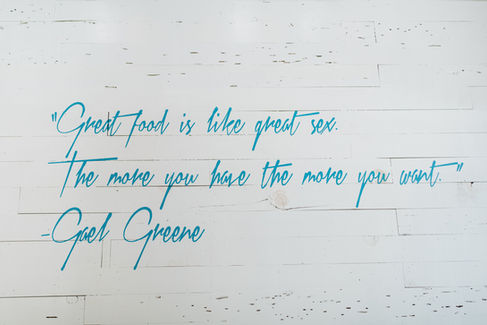 "Great food is like great sex.
The more you have the more you want."
-Gael Greene